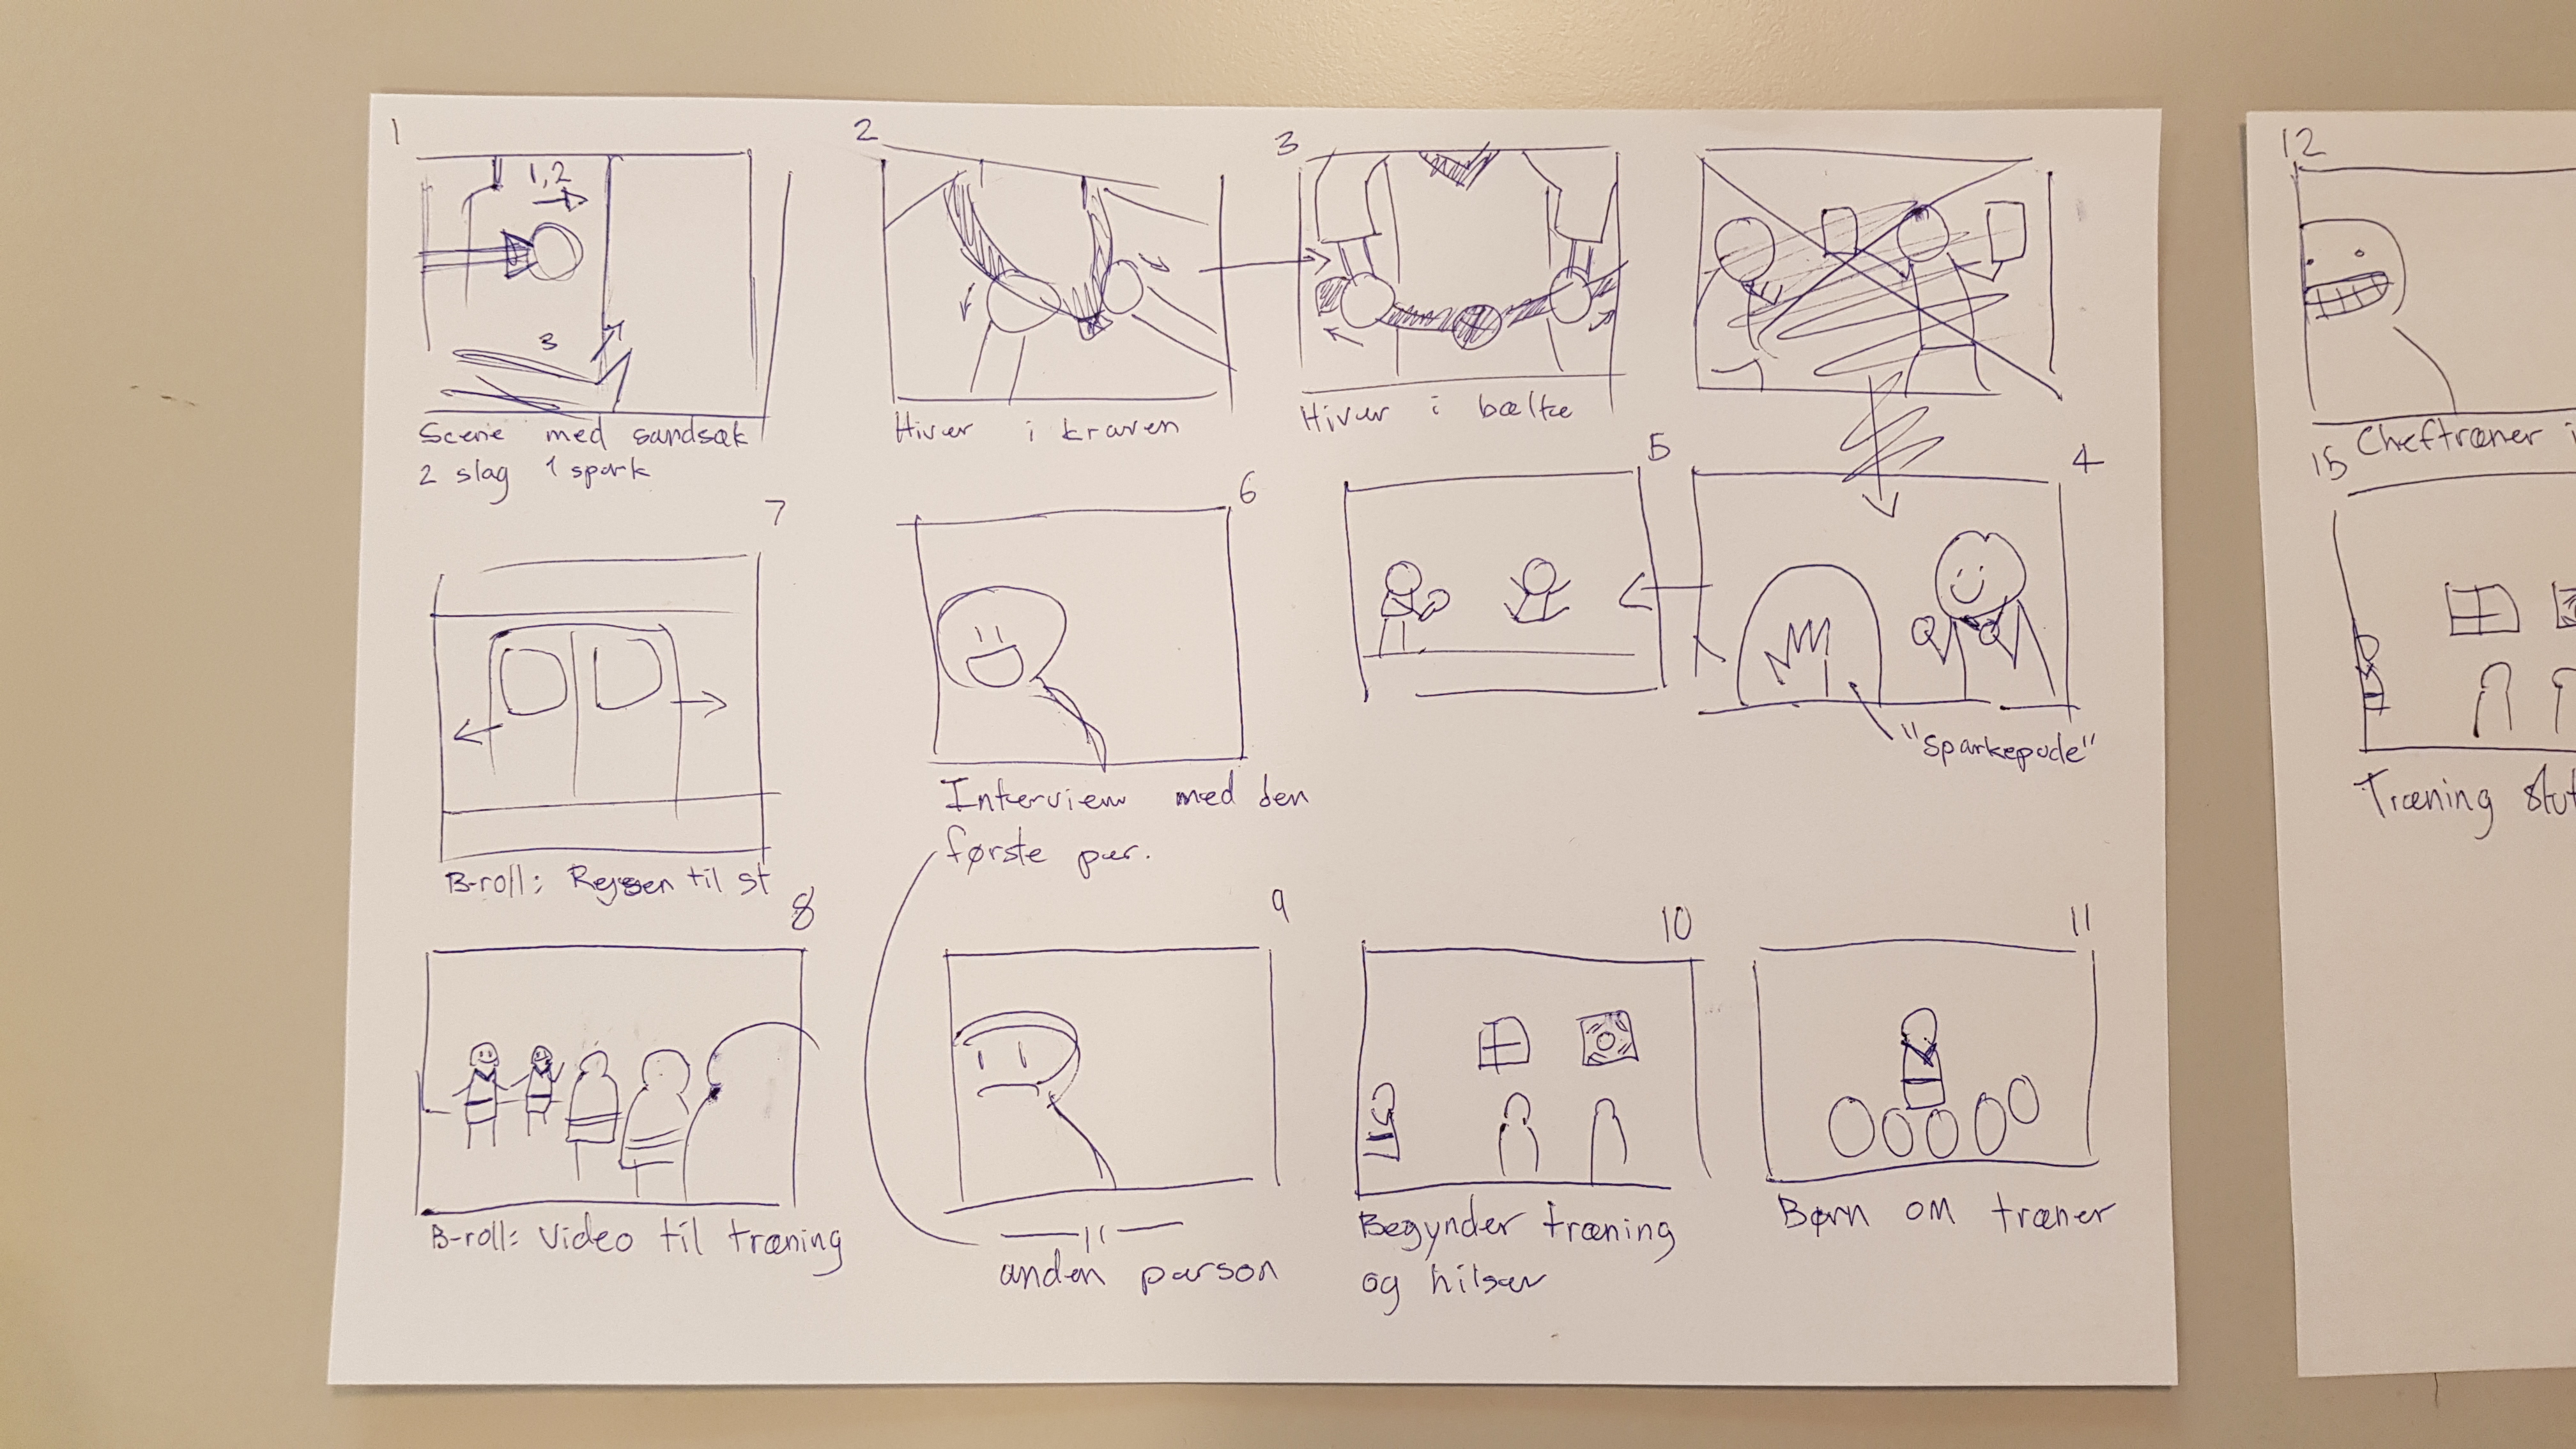 1
1,2
3
Scene med sandsæk
2 slag 1 spark
2
Hiver i kraven
3
Hiver i bælte
4
"Sparkepude"
5
6
Interview med den
første per.
7
B-roll: Rejsen til st
8
B-roll: Video til træning
9
—11—
anden person
10
Begynder træning
og hilser
11
Børn om træner
12
Cheftræner i
15
Træning slut